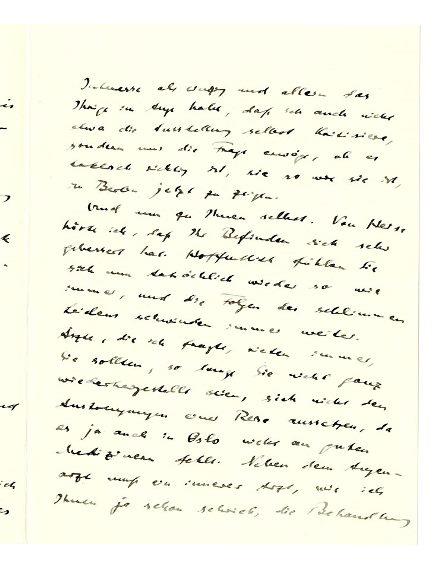 Interesse als einzig und allein das
Ihrige im Auge habe, daß ich auch nicht
etwa die Ausstellung selbst kritisiere,
sondern nur die Frage erwäge, ob es
taktisch richtig ist, sie so wie sie ist,
in Berlin jetzt zu zeigen.
Und nun zu Ihnen selbst. Von Heise
hörte ich, daß Ihr Befinden sich sehr
gebessert hat. Hoffentlich fühlen Sie
sich nun tatsächlich wieder so wie
immer, und die Folgen des schlimmen
Leidens schwinden immer weiter.
Ärzte, die ich fragte, rieten immer,
Sie sollten, so lange Sie nicht ganz
wiederhergestellt seien, sich nicht den
Anstrengungen einer Reise aussetzen, da
es ja auch in Oslo nicht an guten
Medizinern fehlt. Neben dem Augen-
arzt muß ein innerer Arzt, wie ich
Ihnen ja schon schrieb, die Behandlung